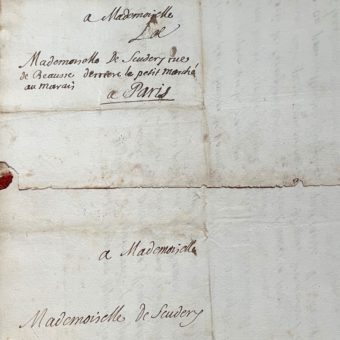 a Mademoiselle
Mademoiselle De Scudery rue
de Beausse derriere le petit marché
au marais
a Paris
a Mademoiselle
Mademoiselle de Scudery